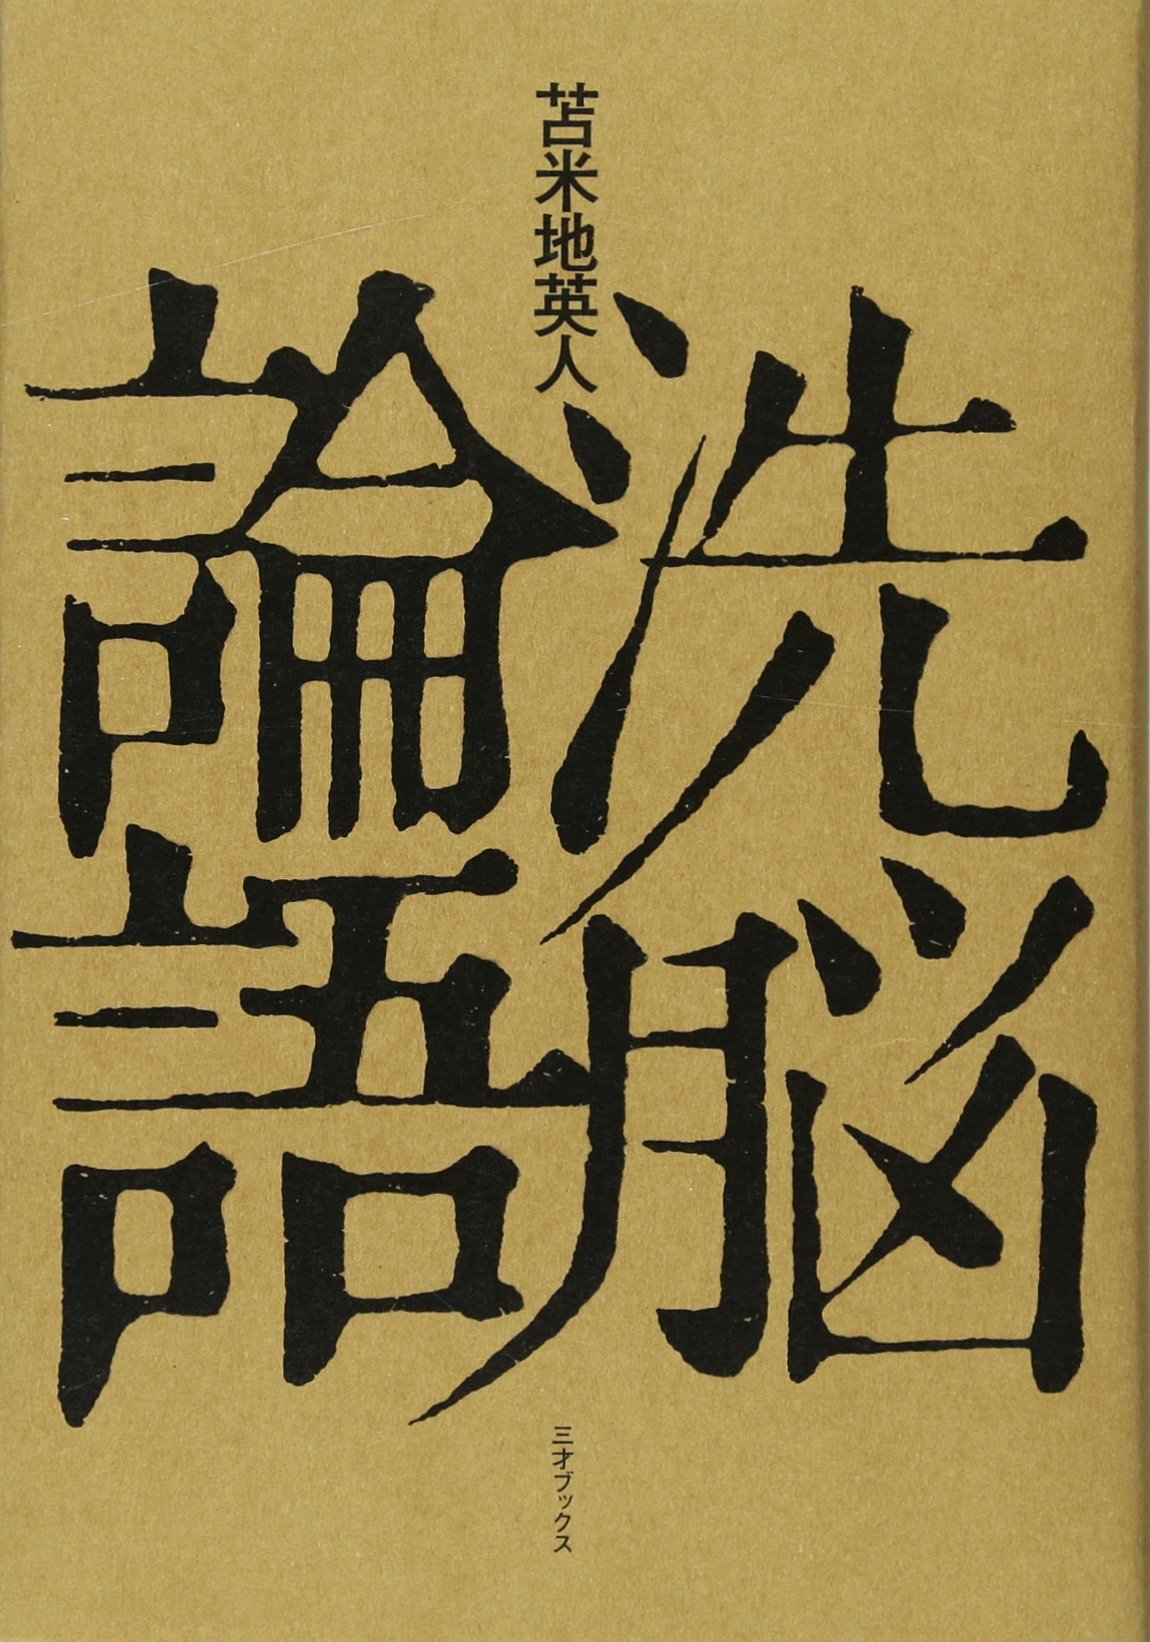 苫米地英人
洗脳
論語
三才ブックス